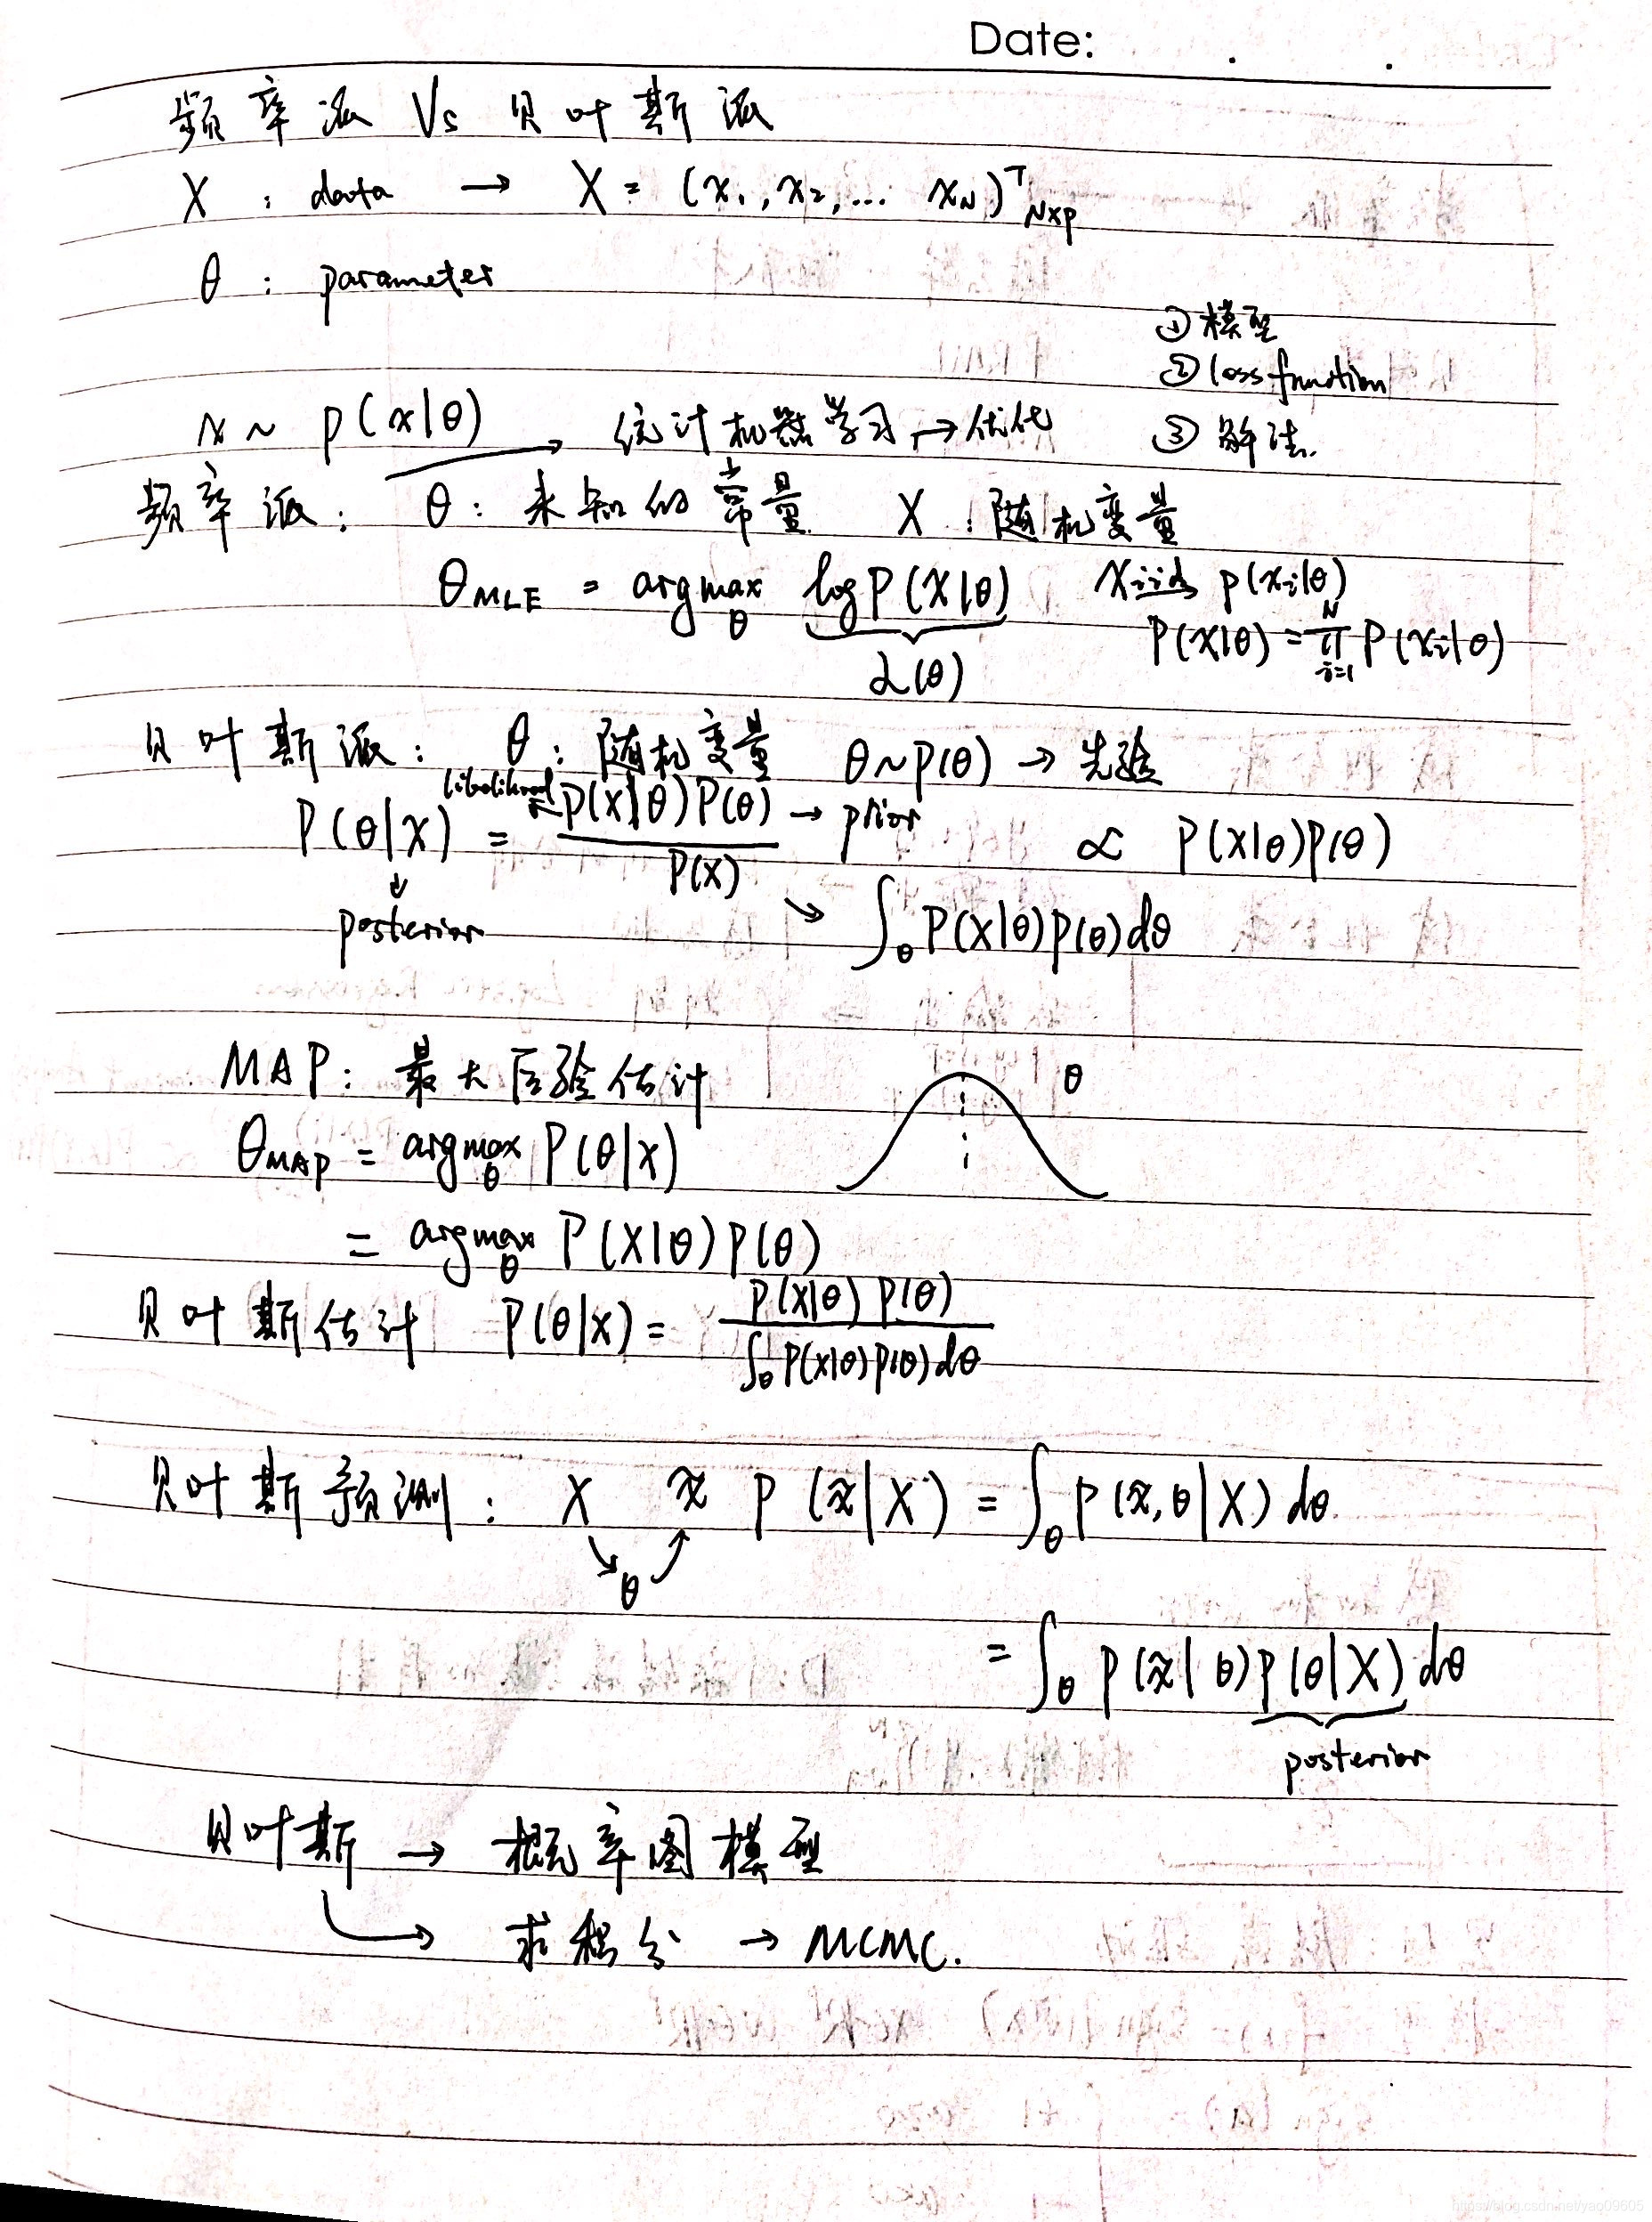 Date:
频率派 Vs 贝叶斯派
X : data → X = (x₁, x₂, ... x_N)ᵀ_{N×p}
θ : parameter
① 模型
② loss function
x ~ p(x|θ) → 统计机器学习 → 优化 ③ 解法.
频率派: θ: 未知的常量 X : 随机变量
θ_MLE = argmax_θ log P(X|θ) x_i iid p(x_i|θ)
P(X|θ) = ∏_{i=1}^N P(x_i|θ)
L(θ)
贝叶斯派: θ: 随机变量 θ~P(θ) → 先验
likelihood
P(θ|X) = P(X|θ)P(θ) / P(X) → prior ∝ P(X|θ)P(θ)
↓ posterior ↘ ∫_θ P(X|θ)P(θ)dθ
MAP: 最大后验估计 θ
θ_MAP = argmax_θ P(θ|X)
= argmax_θ P(X|θ)P(θ)
贝叶斯估计 P(θ|X) = P(X|θ) P(θ) / ∫_θ P(X|θ)P(θ)dθ
贝叶斯预测: X x̃ P(x̃|X) = ∫_θ P(x̃,θ|X) dθ.
↘ θ ↗
= ∫_θ P(x̃|θ)P(θ|X) dθ
posterior
贝叶斯 → 概率图模型
→ 求积分 → MCMC.
https://blog.csdn.net/yao09605